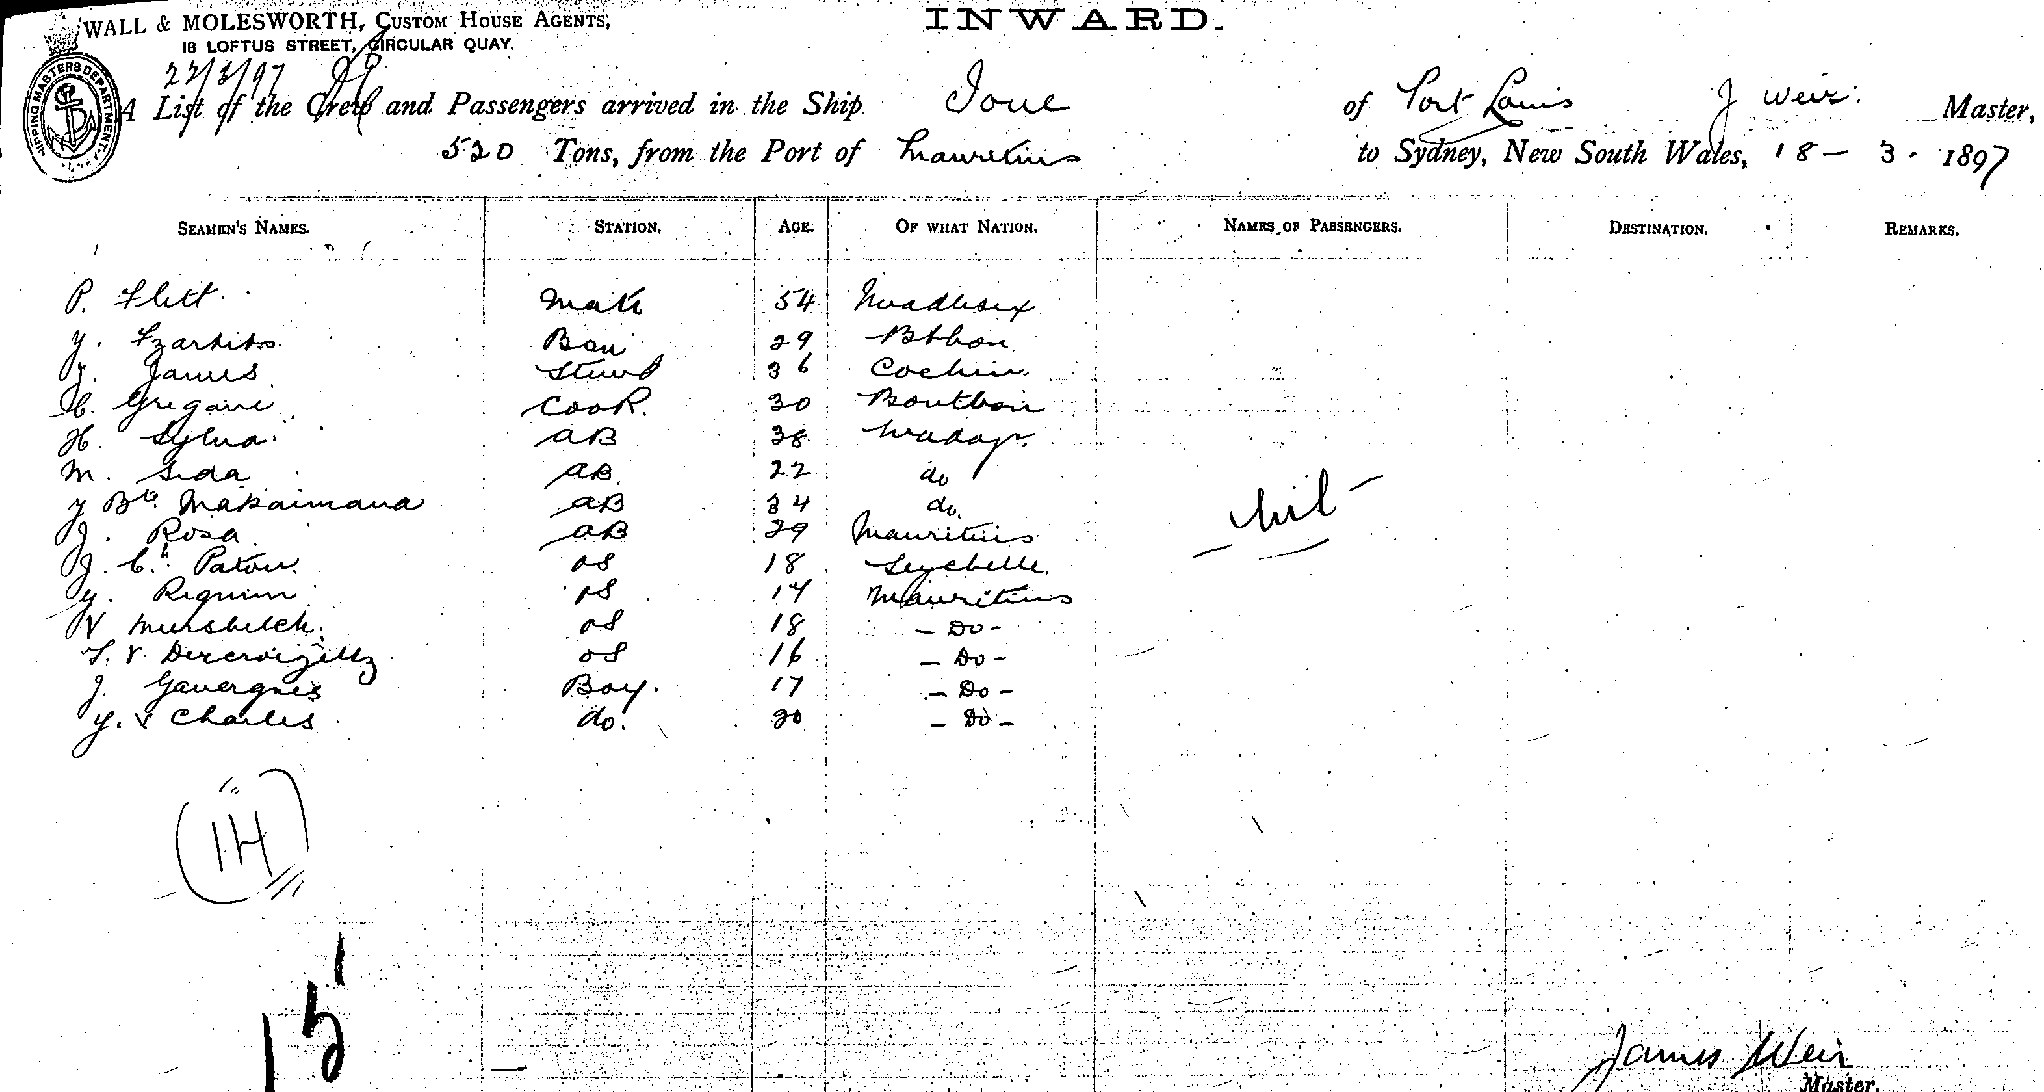 WALL & MOLESWORTH, CUSTOM HOUSE AGENTS,
18 LOFTUS STREET, CIRCULAR QUAY.
INWARD.
22/3/97
SHIPPING MASTERS DEPARTMENT
A List of the Crew and Passengers arrived in the Ship Ione of Port Louis J Weir Master,
520 Tons, from the Port of Mauritius to Sydney, New South Wales, 18 - 3 - 1897
SEAMEN'S NAMES. STATION. AGE. OF WHAT NATION. NAMES OF PASSENGERS. DESTINATION. REMARKS.
P. Flett Mate 54
29
James Stewd 36 Cochin
Cook 30 Bourbon
H. Sylva AB 38 Madagr.
M. AB 22 do
AB 34 do.
J. Rosa AB 29 Mauritius
J. Paton OS 18 Seychelle
OS 17 Mauritius
OS 18 - Do -
OS 16 - Do -
J. Boy. 17 - Do -
Charles do. 20 - Do -
nil
14
15
James Weir
Master.